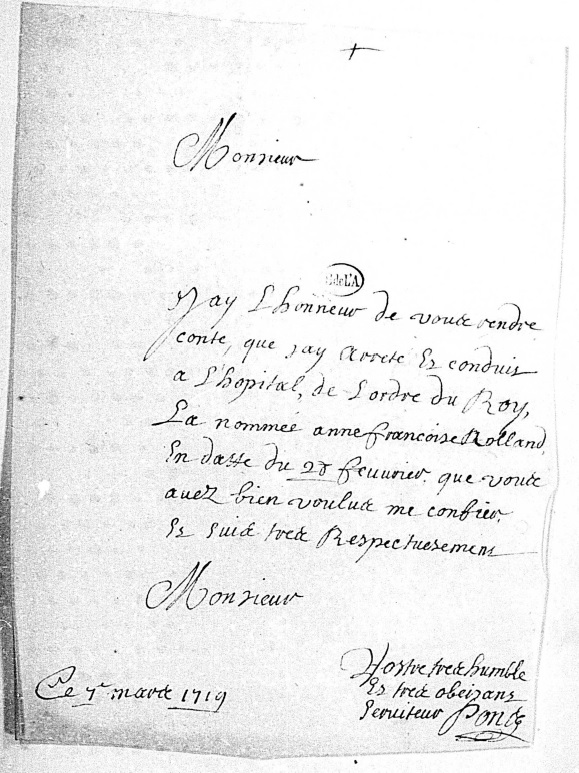 Monsieur
B. de L'A
Jay L'honneur de vous rendre
conte, que jay arreté Et conduit
a L'hopital, de Lordre du Roy,
La nommée anne francoise Rolland,
En datte du 28 feuurier. que vous
auez bien voulus me confier.
Et suis tres Respectuesement
Monsieur
Vostre tres humble
Et tres obeisans
Seruiteur
Ce 7e mars 1719